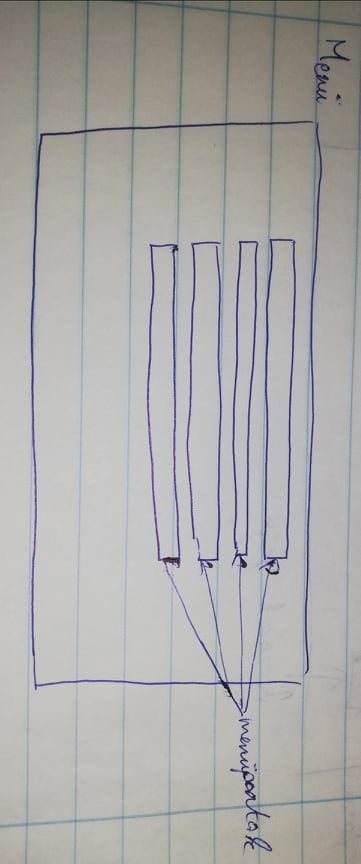 Menü
menüpontok